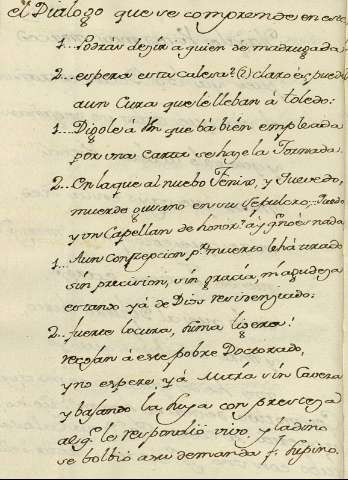 el Dialogo que se comprende en este
1... Podrás dezir á quien de madrugada
2... espera esta Calesa? (2) claro és, puede
aun Cura que le lleban á toledo:
1... Digole á Vm que bá bien empleada
por una Carta se haze la Jornada.
2... En la que al nuebo Fenix, y Quevedo,
muerde gusano en su sepulcro,
y un Capellan de honor. á y q.e no és nada
1... Aun Concepcion p.r muerto le há
sin precision, sin gracia, ni agudeza
estando yá de Dios residenziado:
2... fuerte locura, suma ligereza!
á este pobre Doctorado,
y no espere, yá Mitra sin Cavera
y bajando la suya con presteza
al q.e le respondió vivo, y ladino
se bolbió a su demanda f.